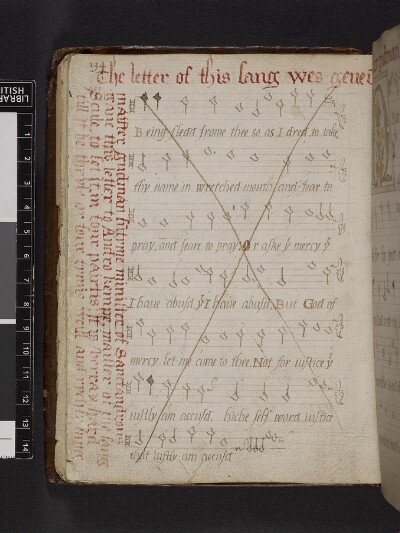 The letter of this sang wes geuei
maister gudman sumtyme minister of Sanctandrous
gaue this letter to Andro kempe maister of the sang
Scule to set it in four partis. It is verray hard
till be thocht
Being sledd frome thee so as I dred, to take
thy name in wretched mouth, and fear to
pray, and feare to pray, Or aske yͤ mercy yͤ
I haue abusd, yͤ I haue abusd, But God of
mercy let me come to thee, Not for iustice yͤ
iustly am accusd, hiche self word iustice
iustly am accusd
LIBRARY
BRITISH
1
2
3
4
5
6
7
8
9
10
11
12
13
14